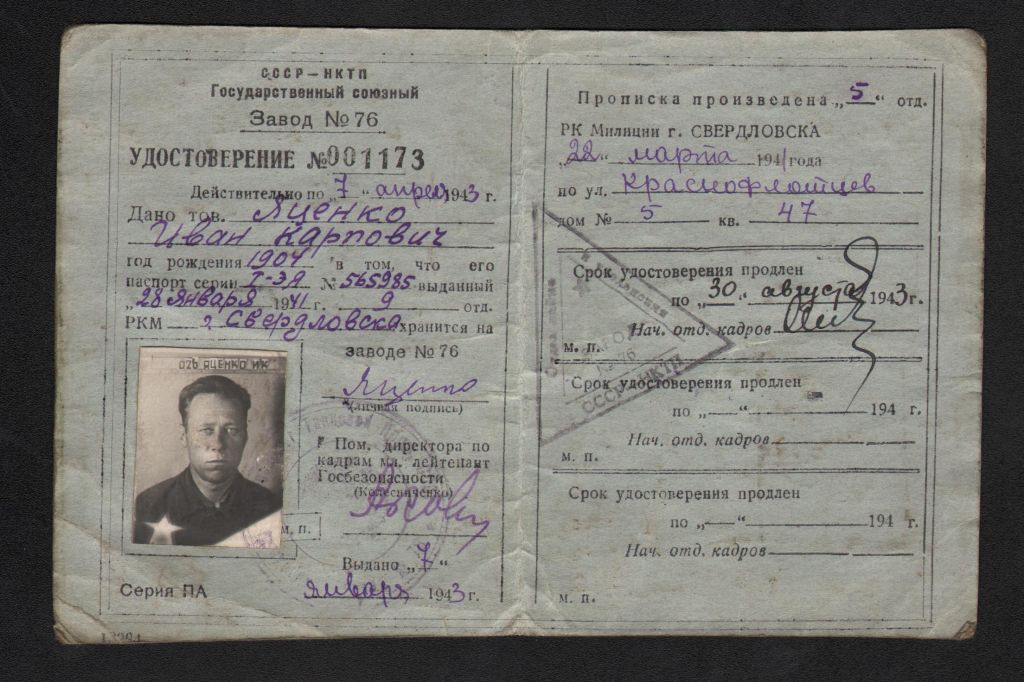 СССР — НКТП
Государственный союзный
Завод № 76
УДОСТОВЕРЕНИЕ №001173
Действительно по „7“ апреля 1943 г.
Дано тов. Яценко
Иван Карпович
год рождения 1904 в том, что его
паспорт серии I-ЭЯ № 565985 выданный
„28 января 1941 г. 9 отд.
РКМ г. Свердловска хранится на
заводе № 76
026 ЯЦЕНКО ИК
Яценко
(личная подпись)
Пом. директора по
кадрам мл. лейтенант
Госбезопасности
(Колесниченко)
М. П.
Выдано „7“
января 1943 г.
Серия ПА
13294
Прописка произведена „5“ отд.
РК Милиции г. СВЕРДЛОВСКА
„22“ марта 1941 года
по ул. Краснофлотцев
дом № 5 кв. 47
Срок удостоверения продлен
по „30“ августа 1943 г.
Нач. отд. кадров
м. п.
ЗАВОД
№ 76
СССР НКТП
Срок удостоверения продлен
по „—“ 194 г.
Нач. отд. кадров
м. п.
Срок удостоверения продлен
по „—“ 194 г.
Нач. отд. кадров
м. п.